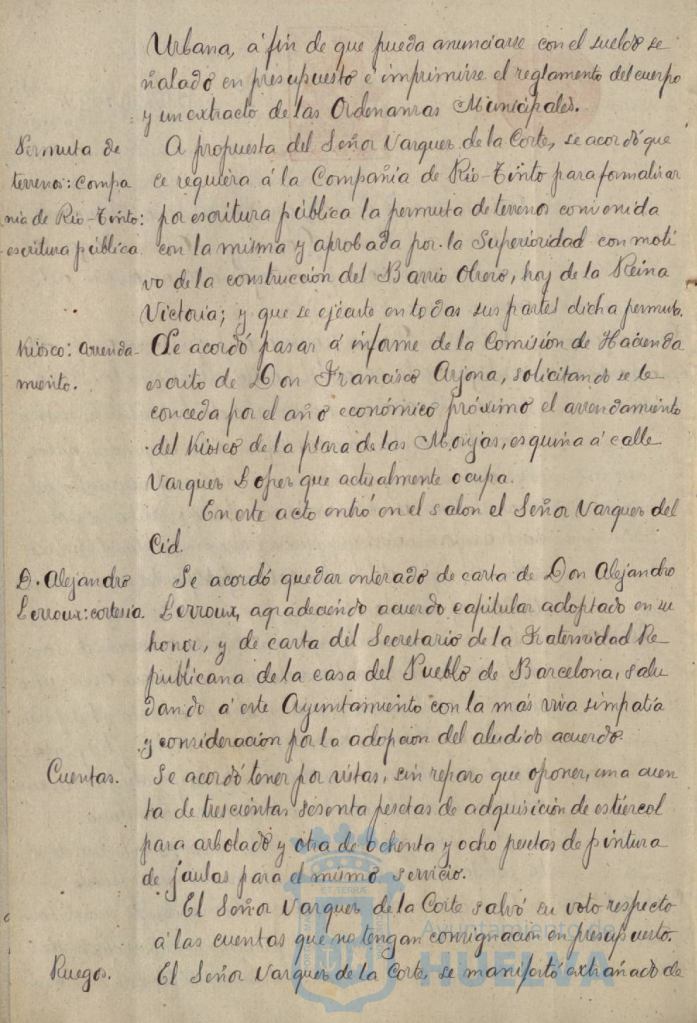 Urbana, á fin de que pueda anunciarse con el sueldo se
ñalado en presupuesto é imprimirse el reglamento del cuerpo
y un extracto de las Ordenanzas Municipales.
Permuta de
terrenos: Compa
ñia de Rio-Tinto:
escritura pública
A propuesta del Señor Vazquez de la Corte, se acordó que
se requiera á la Compañia de Rio-Tinto para formalizar
por escritura pública la permuta de terrenos convenida
con la misma y aprobada por la Superioridad con moti
vo de la construcción del Barrio Obrero, hoy de la Reina
Victoria; y que se ejecute en todas sus partes dicha permuta.
Kiosco: arrenda-
miento.
Se acordó pasar á informe de la Comisión de Hacienda
escrito de Don Francisco Arjona, solicitando se le
conceda por el año económico próximo el arrendamiento
del Kiosco de la plaza de las Monjas, esquina á calle
Vazquez Lopez que actualmente ocupa.
En este acto entró en el salon el Señor Vazquez del
Cid.
D. Alejandro
Lerroux: cortesia.
Se acordó quedar enterado de carta de Don Alejandro
Lerroux, agradeciendo acuerdo capitular adoptado en su
honor, y de carta del Secretario de la Fraternidad Re
publicana de la casa del Pueblo de Barcelona, salu
dando á este Ayuntamiento con la más viva simpatia
y consideracion por la adopcion del aludido acuerdo.
Cuentas.
Se acordó tener por vistas, sin reparo que oponer, una cuen
ta de trescientas sesenta pesetas de adquisición de estiercol
para arbolado y otra de ochenta y ocho pesetas de pintura
de jaulas para el mismo servicio.
El Señor Vazquez de la Corte salvó su voto respecto
á las cuentas que no tengan consignacion en presupuesto.
Ruegos.
El Señor Vazquez de la Corte, se manifestó extrañado de
Ayuntamiento de
HUELVA